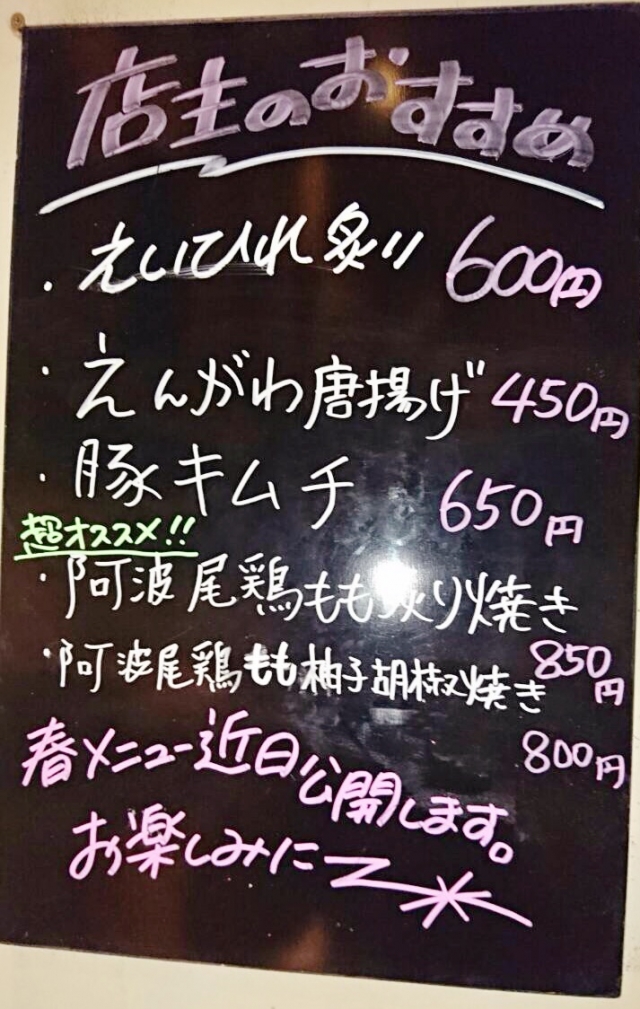 店主のおすすめ
・えいひれ炙り 600円
・えんがわ唐揚げ 450円
・豚キムチ 650円
超オススメ!!
・阿波尾鶏もも炙り焼き
850円
・阿波尾鶏もも柚子胡椒焼き
800円
春メニュー近日公開します。
お楽しみにー